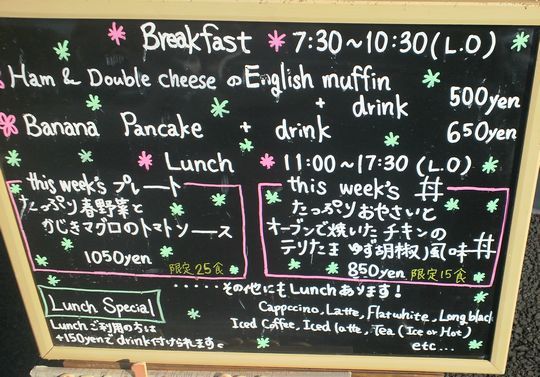 Breakfast * 7:30~10:30(L.O)
Ham & Double cheese のEnglish muffin
+ drink 500yen
Banana Pancake + drink 650yen
Lunch * 11:00~17:30 (L.O)
this week's プレート
たっぷり春野菜と
かじきマグロのトマトソース
1050yen
限定25食
this week's 丼
たっぷりおやさいと
オーブンで焼いたチキンの
テリたま ゆず胡椒風味丼
850yen 限定15食
・・・・・その他にもLunchあります!
Lunch Special
Lunchご利用の方は
+150yenでdrink付けられます。
Cappccino, Latte, Flatwhite, Longblack
Iced Coffee, Iced latte, Tea (Ice or Hot)
etc...